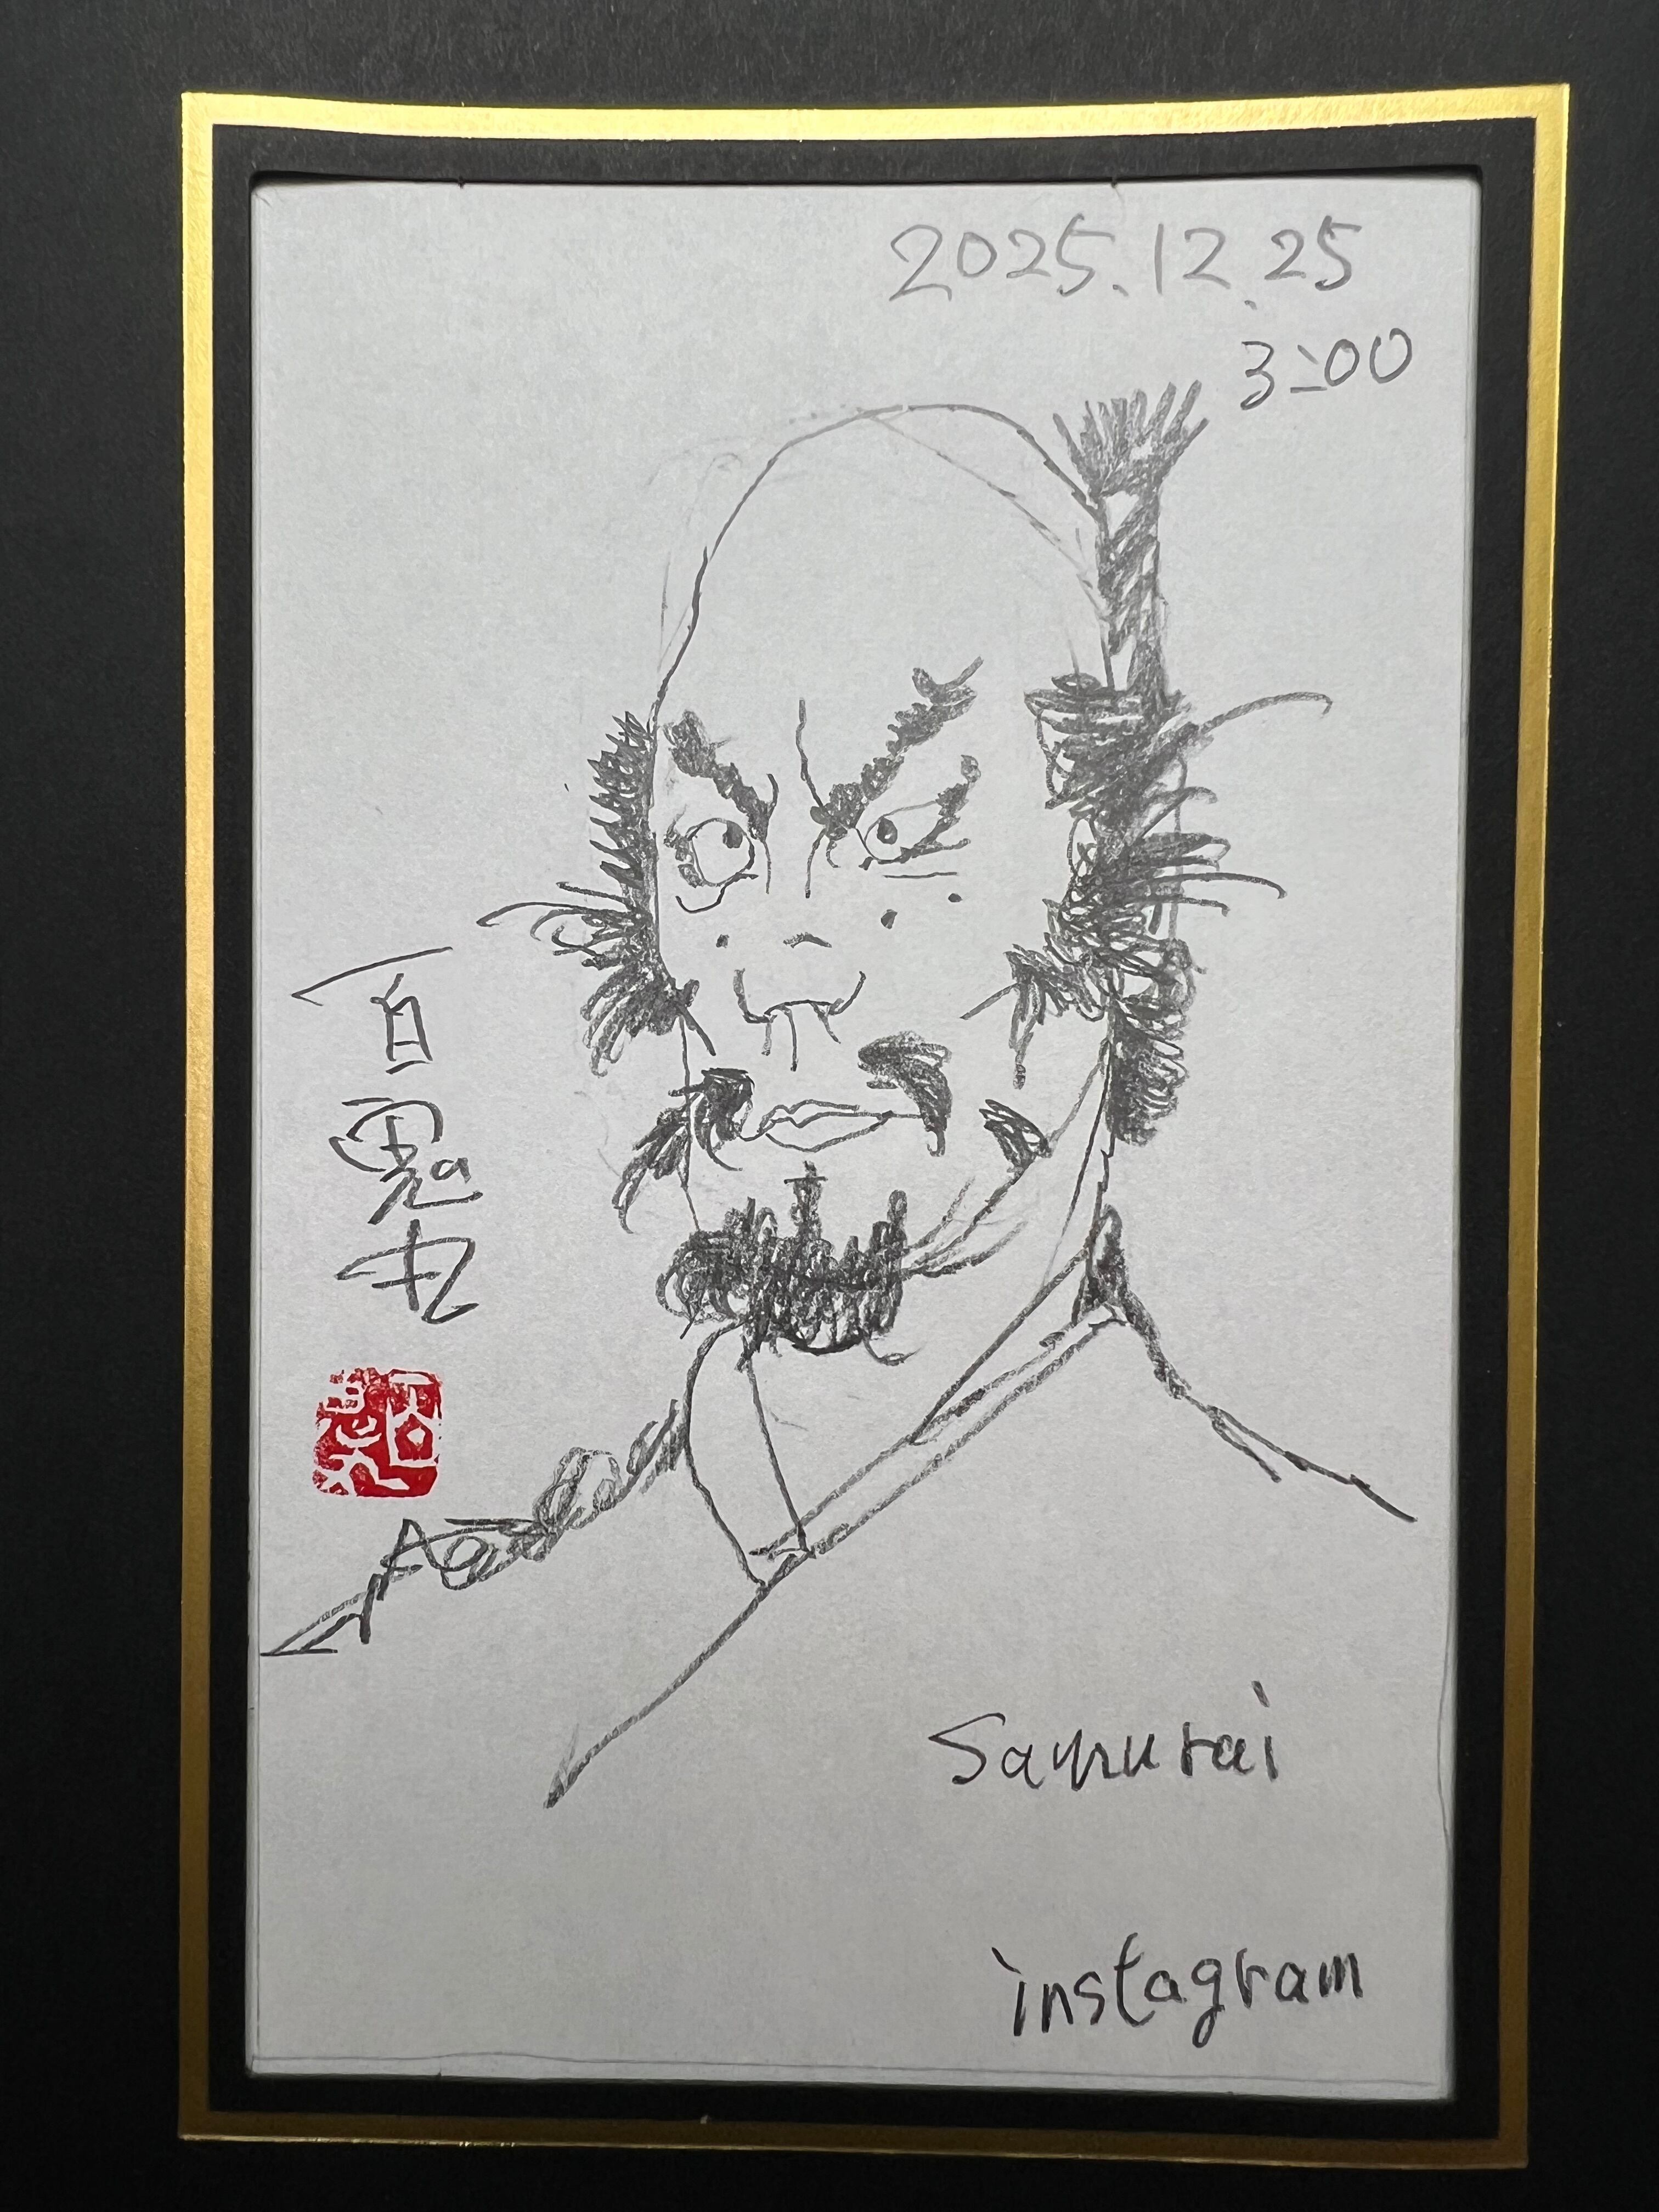 2025.12.25
3:00
百鬼丸
Samurai
instagram